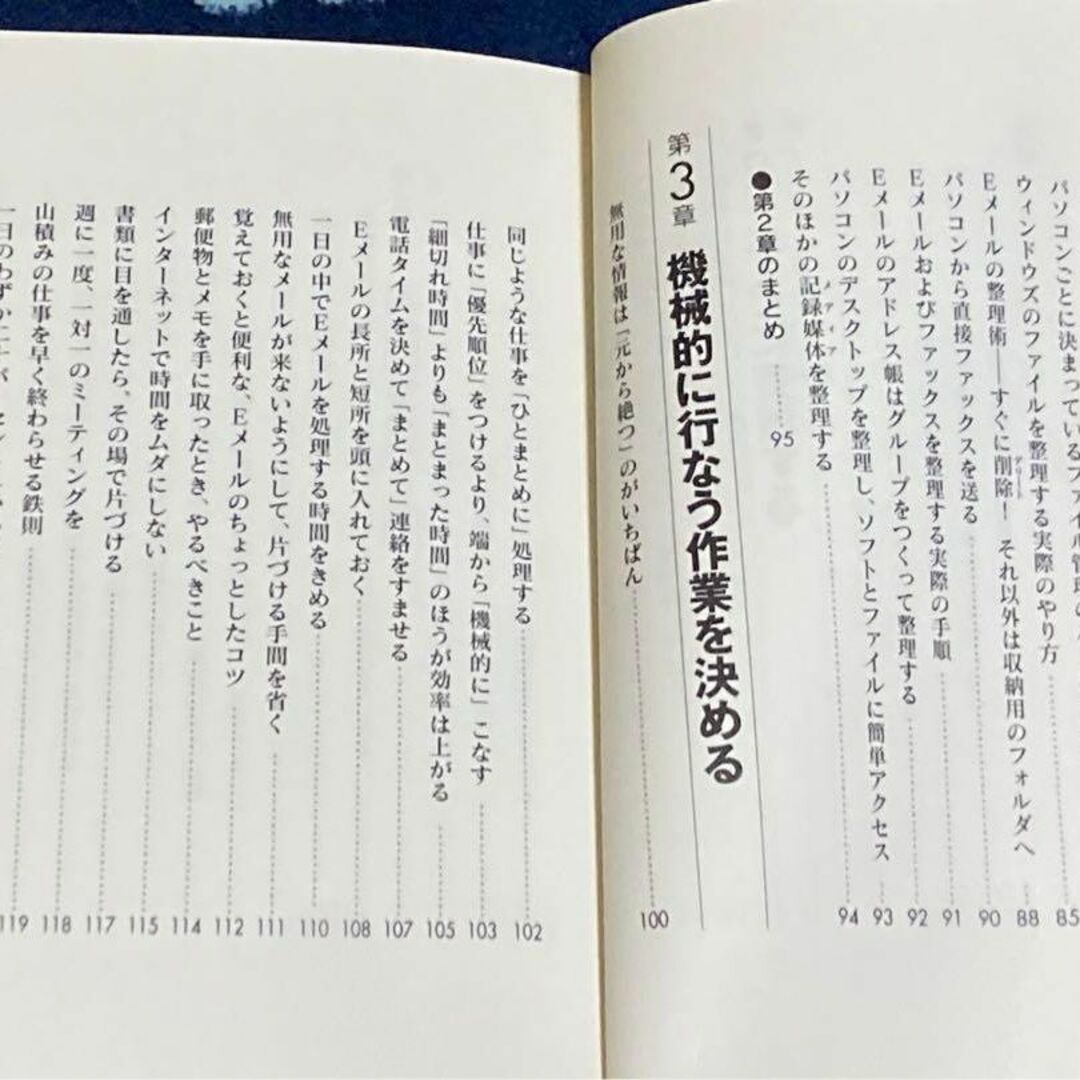 パソコンごとに決まっているファイル管理の 85
ウィンドウズのファイルを整理する実際のやり方 88
Eメールの整理術――すぐに削除！ それ以外は収納用のフォルダへ 90
デリート
パソコンから直接ファックスを送る 91
Eメールおよびファックスを整理する実際の手順 92
Eメールのアドレス帳はグループをつくって整理する 93
パソコンのデスクトップを整理し、ソフトとファイルに簡単アクセス 94
そのほかの記録媒体を整理する
メディア
●第2章のまとめ 95
第3章 機械的に行なう作業を決める
無用な情報は「元から絶つ」のがいちばん 100
同じような仕事を「ひとまとめに」処理する 102
仕事に「優先順位」をつけるより、端から「機械的に」こなす 103
「細切れ時間」よりも「まとまった時間」のほうが効率は上がる 105
電話タイムを決めて「まとめて」連絡をすませる 107
Eメールの長所と短所を頭に入れておく 108
一日の中でEメールを処理する時間をきめる 110
無用なメールが来ないようにして、片づける手間を省く 111
覚えておくと便利な、Eメールのちょっとしたコツ 112
郵便物とメモを手に取ったとき、やるべきこと 114
インターネットで時間をムダにしない 115
書類に目を通したら、その場で片づける 117
週に一度、一対一のミーティングを 118
山積みの仕事を早く終わらせる鉄則 119
一日のわずか